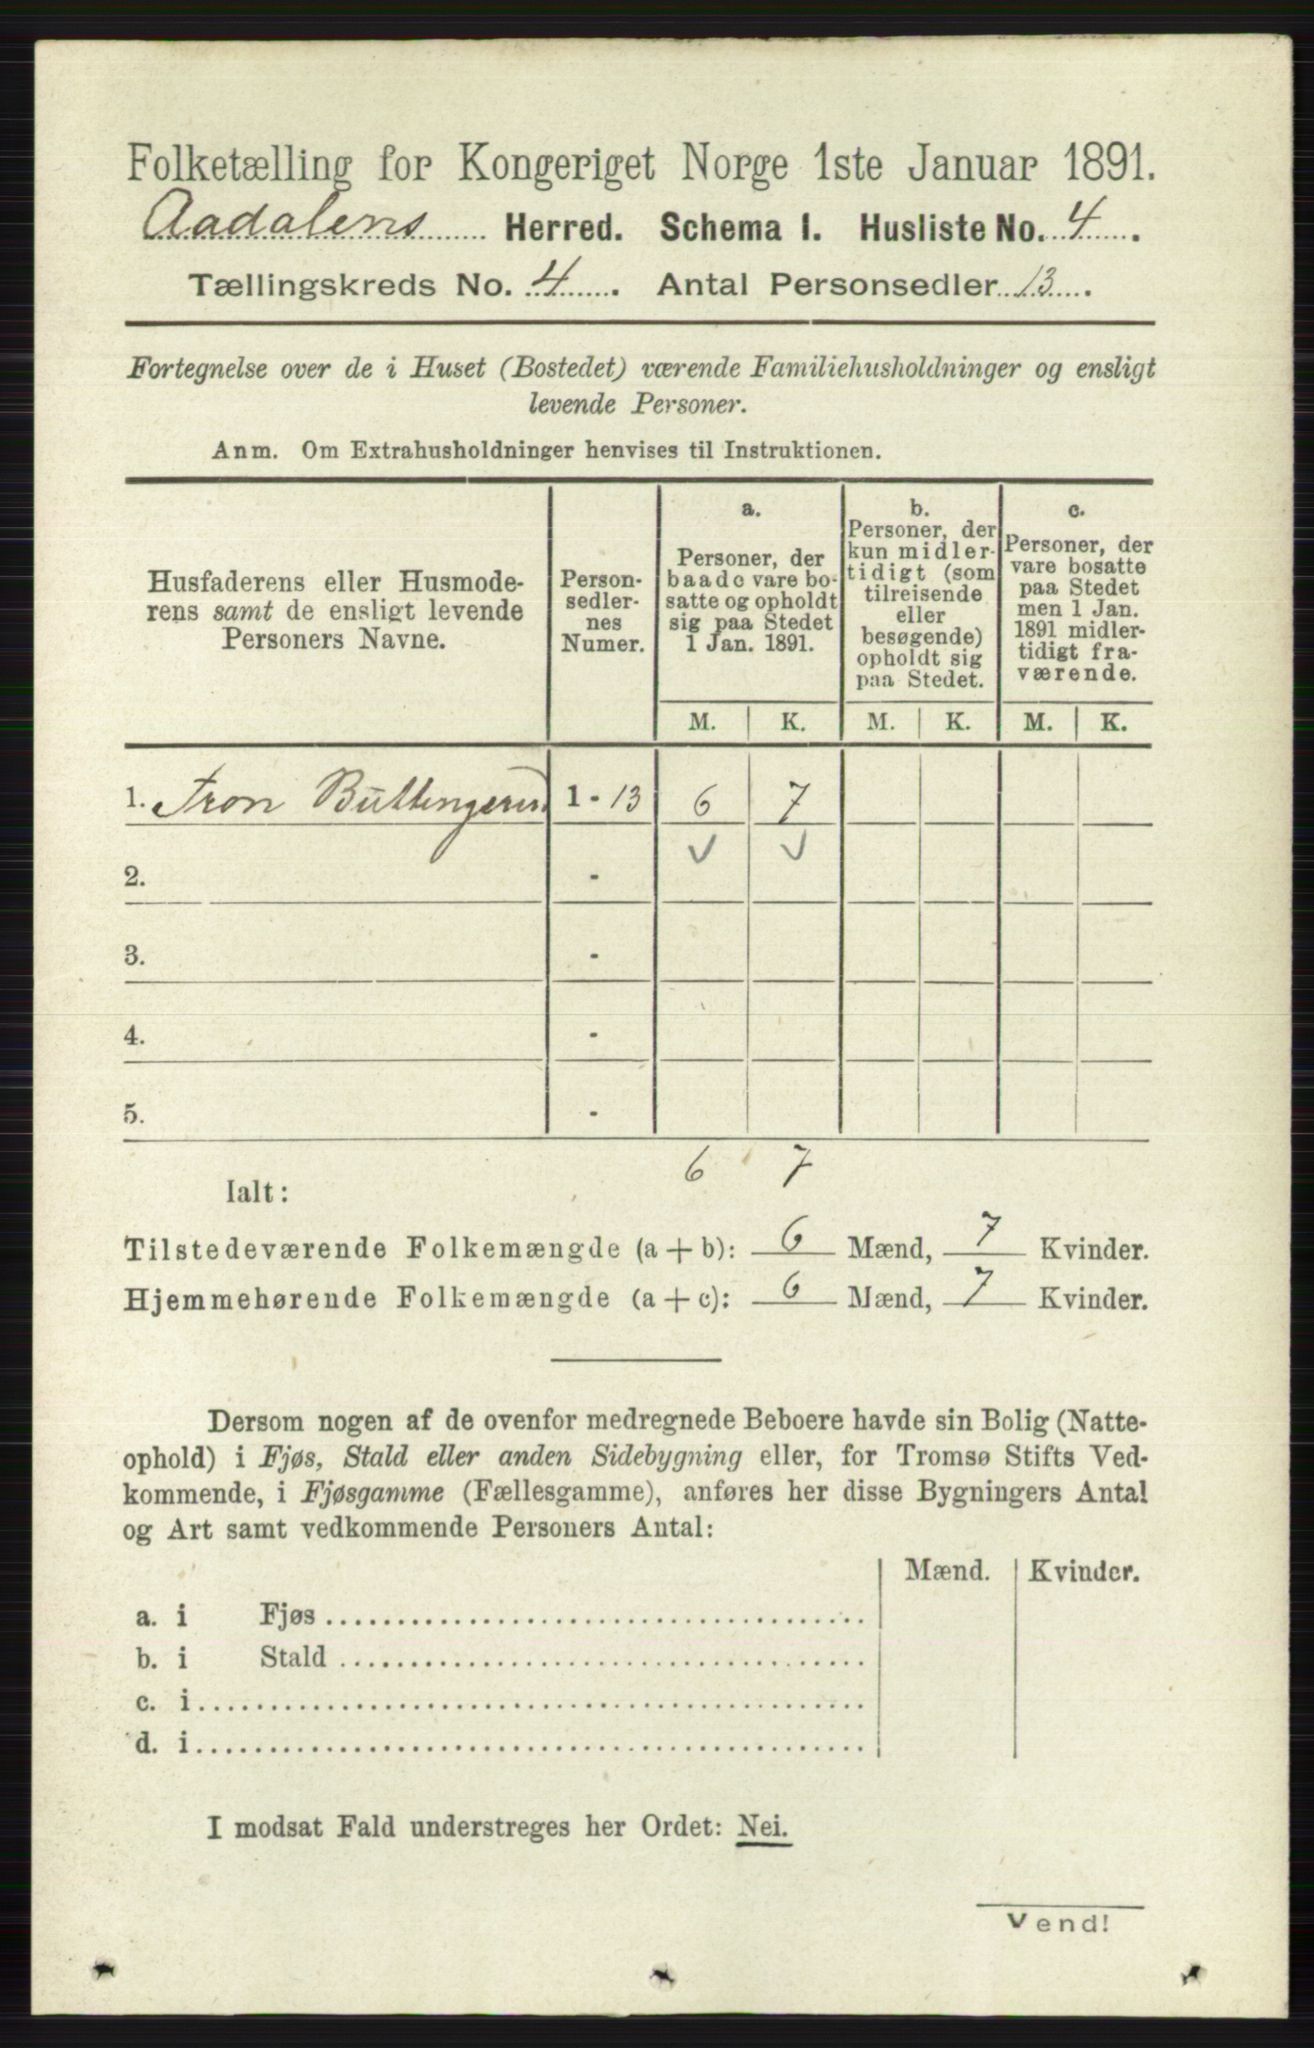 Folketælling for Kongeriget Norge 1ste Januar 1891.
Aadalens Herred. Schema 1. Husliste No. 4.
Tællingskreds No. 4. Antal Personsedler 13.
Fortegnelse over de i Huset (Bostedet) værende Familiehusholdninger og ensligt
levende Personer.
Anm. Om Extrahusholdninger henvises til Instruktionen.
Husfaderens eller Husmode-
rens samt de ensligt levende
Personers Navne.
Person-
sedler-
nes
Numer.
a.
Personer, der
baade vare bo-
satte og opholdt
sig paa Stedet
1 Jan. 1891.
b.
Personer, der
kun midler-
tidigt (som
tilreisende
eller
besøgende)
opholdt sig
paa Stedet.
c.
Personer, der
vare bosatte
paa Stedet
men 1 Jan.
1891 midler-
tidigt fra-
værende.
M. K. M. K. M. K.
1. Tron 1 - 13 6 7
2. -
3. -
4. -
5. -
6 7
Ialt:
Tilstedeværende Folkemængde (a + b): 6 Mænd, 7 Kvinder.
Hjemmehørende Folkemængde (a + c): 6 Mænd, 7 Kvinder.
Dersom nogen af de ovenfor medregnede Beboere havde sin Bolig (Natte-
ophold) i Fjøs, Stald eller anden Sidebygning eller, for Tromsø Stifts Ved-
kommende, i Fjøsgamme (Fællesgamme), anføres her disse Bygningers Antal
og Art samt vedkommende Personers Antal:
Mænd. Kvinder.
a. i Fjøs
b. i Stald
c. i
d. i
I modsat Fald understreges her Ordet: Nei.
Vend!